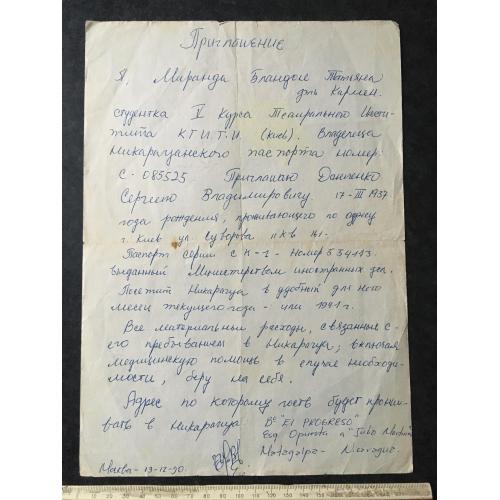 Приглашение
Я, Миранда Бландоне Татьяна
дль Кармен.
студентка V курса Театрального Инсти-
тута К Г И Т. И. (Киев). Владелица
Никарагуанского паспорта номер:
С-085525 Приглашаю Даниленко
Сергиего Владимировичу. 17-III-1937
года рождения, проживающего по адресу
г. Киев ул. Суворова 11 кв 141-
Паспорт серии с К-1- номер 534113.
выданный Министерством иностранных дел.
Посетить Никарагуа в удобный для него
месец текущего года - или 1991 г.
Все материальные расходы, связанные с-
его пребыванием в Никарагуа; включая
медицинскую помощь в случае необходи-
мости, беру на себя.
Адрес по которому гость будет прожи-
вать в Никарагуа Bo "El PROGRESO"
Esq Opuesta a "Julio Martinez"
Matagalpa- Nicaragua.
Москва - 13-12-90.